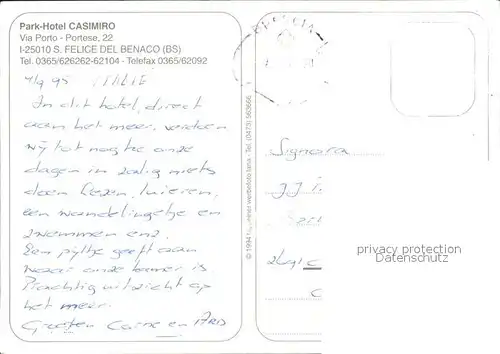 Park-Hotel CASIMIRO
Via Porto - Portese, 22
I-25010 S. FELICE DEL BENACO (BS)
Tel. 0365/626262-62104 - Telefax 0365/62092
4/9 95 ITALIE
In dit hotel, direct
aan het meer, verdoen
wij tot nog toe onze
dagen in zalig niets
doen. Lezen, luieren,
een wandelingetje en
zwemmen enz.
Een pijltje geeft aan
waar onze kamer is
Prachtig uitzicht op
het meer.
Groeten en ARIS
© 1994 werbefoto-lana - Tel. (0473) 563666
Signora
privacy protection
Datenschutz